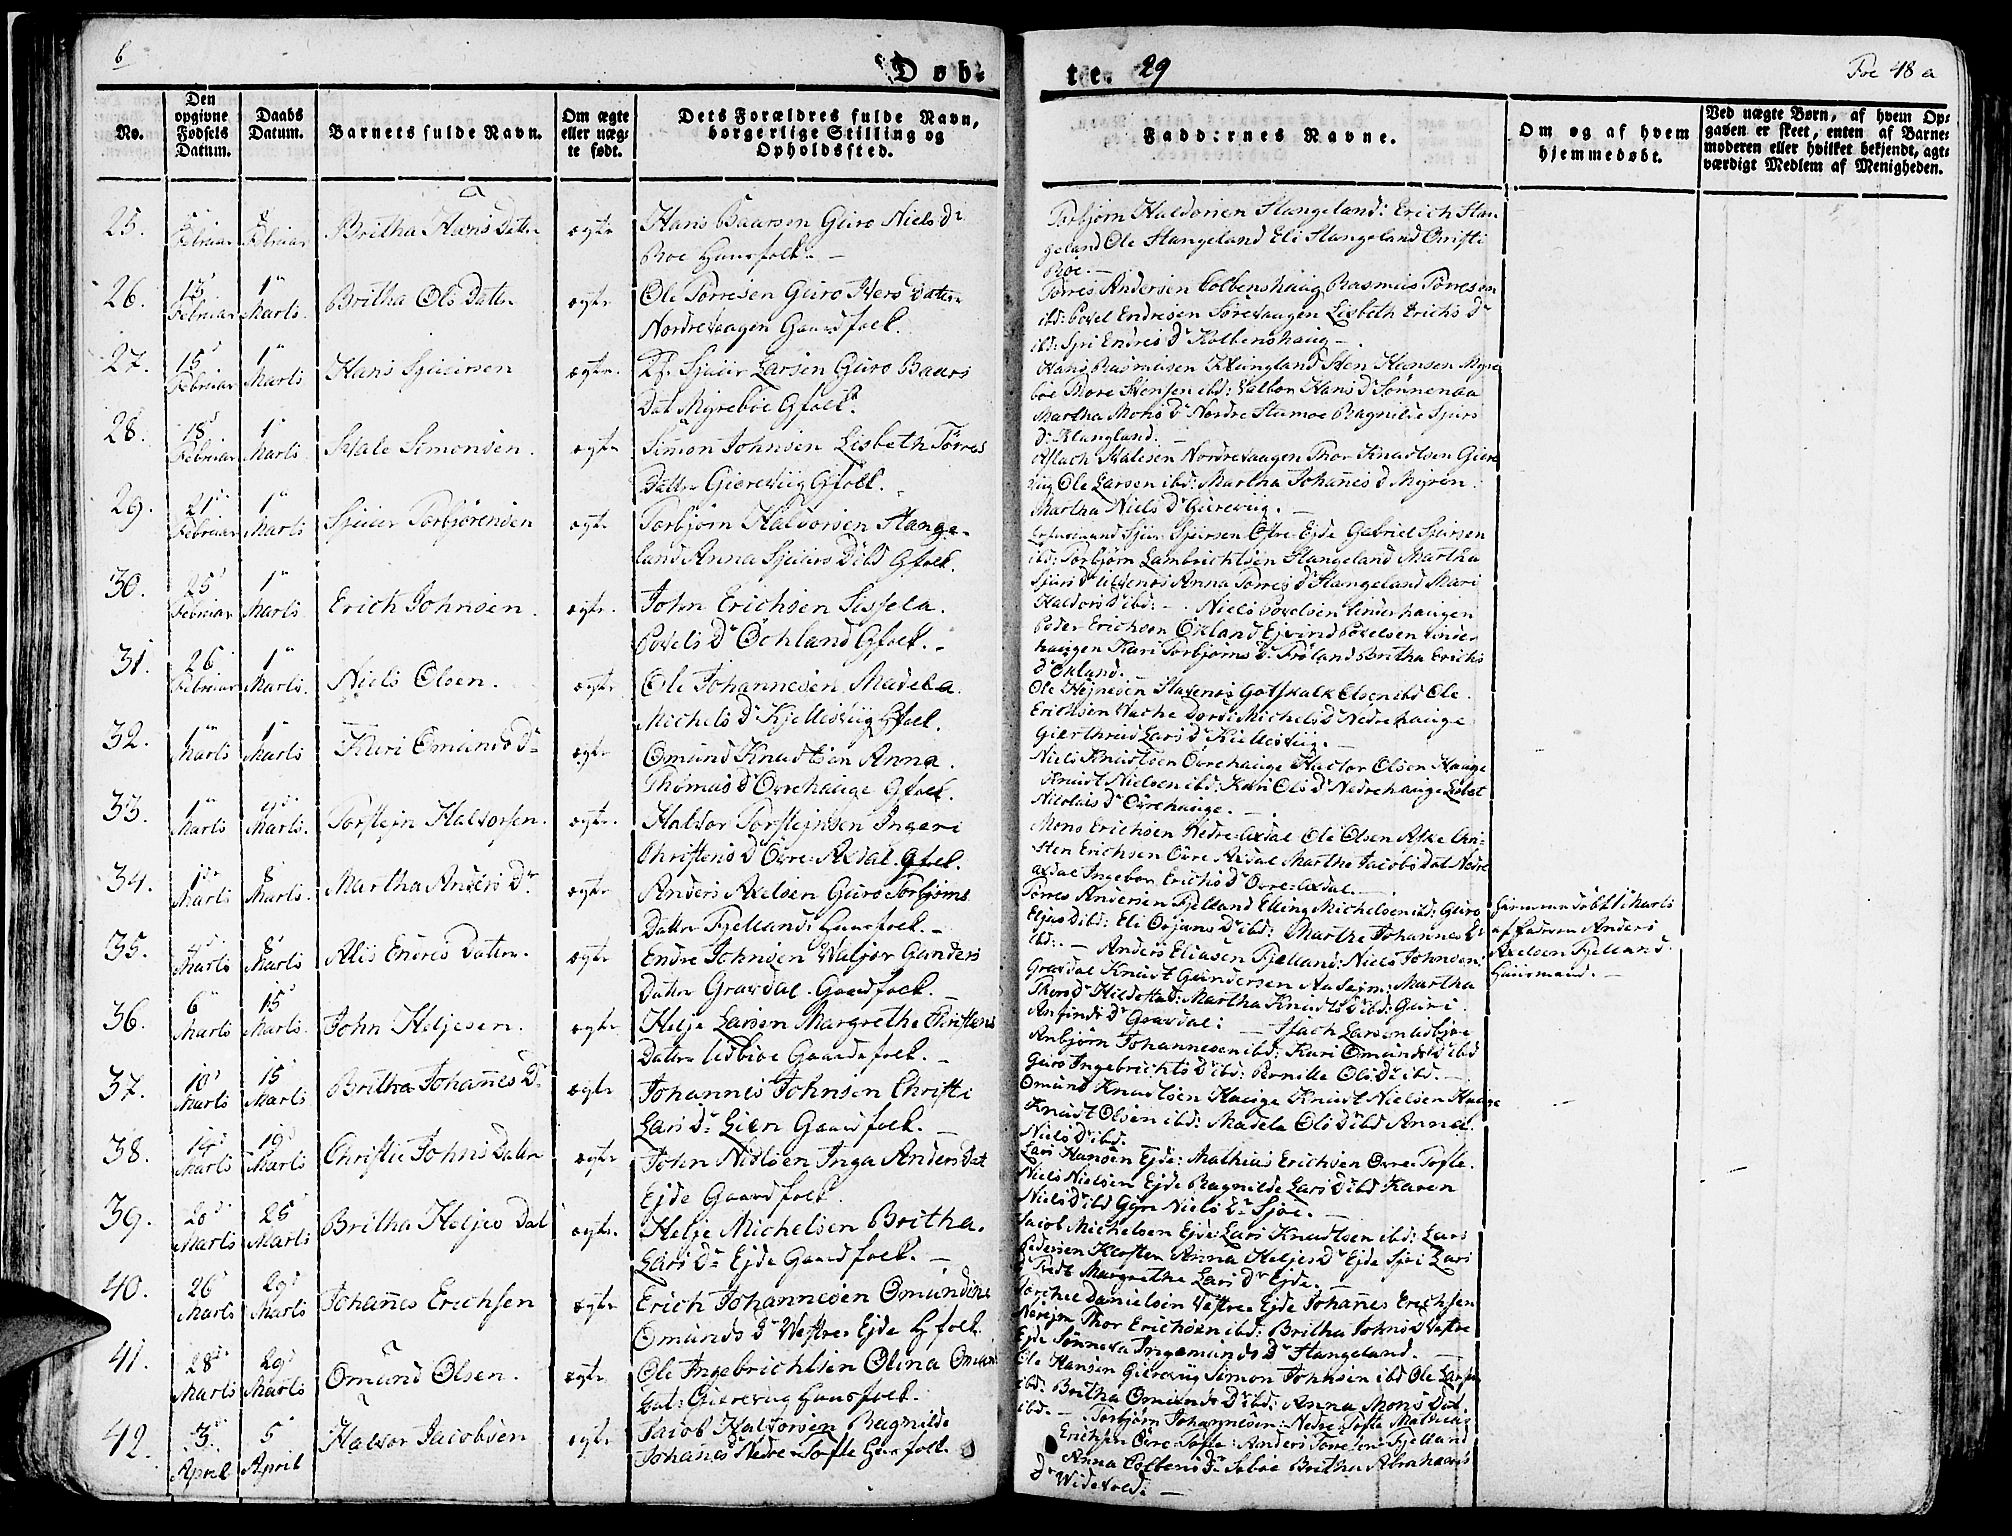 6
Døb-
te. 29
Foe 48 a
No.
Den opgivne Fødsels Datum.
Daabs Datum.
Barnets fulde Navn.
Om ægte eller næg- te født.
Dets Forældres fulde Navn, borgerlige Stilling og Opholdssted.
Faddernes Navne.
Om og af hvem hjemmedøbt.
Ved nægte Børn, af hvem Op- gaven er skeet, enten af Barne- moderen eller hvilket bekjendt, agt- værdigt Medlem af Menigheden.
25. Februar 8 Februar Britha Hans Datter ægte Hans Baarsen Guro Niels Dr
Roe Huusfolk. —
Torbjørn Haldorsen Stangeland: Erich Stan-
geland Ole Stangeland Eli Stangeland Christi
Roe. —
26. 13 Februar 1 Marts. Britha Ols Datter ægte Ole Torresen Guro Ivers Datter
Nordrevaagen Gaardfolk.
Torres Andersen Kolbenshaug Rasmus Torresen
ibd: Povel Endresen Sørevaagen Lisbeth Erichs Dr
ibd: Siri Endres Dr Kolbenshaug —.
27. 15 Februar 1 Marts Hans Sjursen ægte. Sjuur Larsen Guro Baars
Dat Myreboe Gfolk.
Hans Rasmusen Klungland Sten Hansen Myre
boe Thore Stensen ibd: Valbor Hans Dr Sønnenaa
Martha Mons Dr Nordre Stumoe Ragnilde Sjurs
Dr Klungland.
28. 18 Februar 1 Marts Svale Simonsen. ægte Simon Johnsen Lisbeth Torres
Datter Gierevig Gfolk.
Aslach Svalesen Nordrevaagen Thor Knudtsen Giere
vig Ole Larsen ibd: Martha Johannes D Myren.
Martha Niels Dr Gierevig. —
29. 21 Februar 1 Marts Sjuur Torbjørensen ægte Torbjørn Haldorsen Stange-
land Anna Sjuurs D ibd Gfolk.
Sjur Sjursen Østre Ejde Gabriel Sjursen
ibd: Torbjørn Lambrichtsen Stangeland Martha
Anna Torres Dr Stangeland Mari
Haldors D ibd: —
30. 25 Februar 1 Marts Erich Johnsen. ægte. John Erichsen Sissela.
Povels Dr Øchland Gfolk. —
Niels Povelsen Linderhaugen
Peder Erichsen Øxland Ejvind Povelsen Linder
haugen Kari Torbjørns Dr Frøland Britha Erichs
Dr Øxland. —
31. 26 Februar 1 Marts. Niels Olsen. ægte Ole Johannesen Madela
Michels Dr Kjellesvig Gfolk.
Ole Højnesen Stavenes Gotskalk Olsen ibd Ole.
Erichsen Vache Dordi Michels Dr Nedrehauge
Gierthrud Lars Dr Kiellesvig. —
32. 1 Marts 1 Marts Kari Omunds Dr ægte Omund Knudtsen Anna.
Thomas D Øvrehauge Gfolk.
Niels Knudtsen Øvrehauge Halvor Olsen Hauge
Knudt Nielsen ibd: Kari Ols Dr Nedrehauge Lisbet
Nicolais Dr Øvrehauge. —
33. 1 Marts Marts. Torstejn Halvorsen. ægte. Halvor Torstejnsen Ingeri
Christens D Øvre Axdal. Gfol.
Mons Erichsen Nedre Axdal Ole Olsen Aske Chri-
sten Erichsen Øvre Axdal Martha Jacobs Dat Nedre
axdal Ingebor Erichs Dr Øvre axdal.
34. 1 Marts 8 Marts. Martha Anders Dr. ægte Anders Axelsen Guro Torbjørns
Datter Fjelland: Huusfolk. —
Torres Andersen Fjelland Elling Michelsen ibd: Guro
D ibd: Eli Ørjans Dr ibd: Marthe Johannes Dr
ibd: —
Hiemmedøbt 1 Marts
af Faderen Anders
Axelsen Fjelland
Huusmand. —
35. 4 Marts 8 Marts Alis Endres Datter. ægte Endre Johnsen Valjor Gunders
Datter Gravdal. Gaardfolk. —
Anders Eliasen Fjelland: Niels Johnsen
Gravdal Knudt Gundersen Aasejm: Martha
Martha Knudts D ibd: Guri
Anfinds Dr Gravdal: —
36. 6 Marts 15 Marts. John Heljesen. ægte Helje Larsen Margrethe Christens
Datter Udbjoe Gaardsfolk. —
Larsen Udbjoe
Anbjørn Johannesen ibd: Kari Omunds D ibd
Guro Ingebrichts D ibd: Pernille Ols Dr ibd. —
37. 10 Marts 15 Marts Britha Johannes D. ægte Johannes Johnsen Christi
Lars Dr Lien Gaardfolk. —
Omund Knudtsen Hauge Knudt Nielsen Hauge
Knudt Olsen ibd: Madela Ols D ibd Anna
Niels D ibd.
38. 14 Marts 19 Marts Christie Johns Datter ægte John Nielsen Inga Anders Dat
Ejde Gaardfolk.
Lars Hansen Ejde: Mathias Erichsen Øvre Tofte.
Niels Nielsen Ejde Ragnilde Lars D ibd Karen
Niels D ibd Gyri Niels Dr Sjoe. —
39. 20 Marts 25 Marts Britha Heljes Dat ægte. Helje Michelsen Britha.
Lars Dr Ejde Gaardfolk. —
Jacob Michelsen Ejde: Lars Knudtsen ibd: Lars
Pedersen Anna Heljes Dr Ejde Siri Lars
Margrethe Lars Dr Ejde. —
40. 26 Marts 29 Marts Johanes Erichsen ægte Erich Johannesen Omundine
Omunds Dr Vestre Ejde Gfolk.
Torchel Danielsen Vestre Ejde Johanes Erichsen
Thor Erichsen ibd: Britha Johns D Vestre
Ejde Sønneva Ingemunds Dr Stangeland. —
41. 28 Marts 29 Marts Omund Olsen. ægte Ole Ingebrichtsen Olina Omund
Dat: Gierevig Huusfolk.
Ole Hansen Gierevig Simon Johnsen ibd Ole Larsen
ibd: Britha Omunds Dr ibd: Anna Mons Dat.
ibd. —
42. 3 April 5 April Halvor Jacobsen ægte Jacob Halvorsen Ragnilde
Johanes D Nedre Tofte Huusfolk.
Torbjørn Johannesen: Nedre Tofte Mathias
Erichsen Øvre Tofte: Anders Torresen Fjelland
Anna Kolbens Dr Saboe Britha Abrahams
Dr Widevold: —